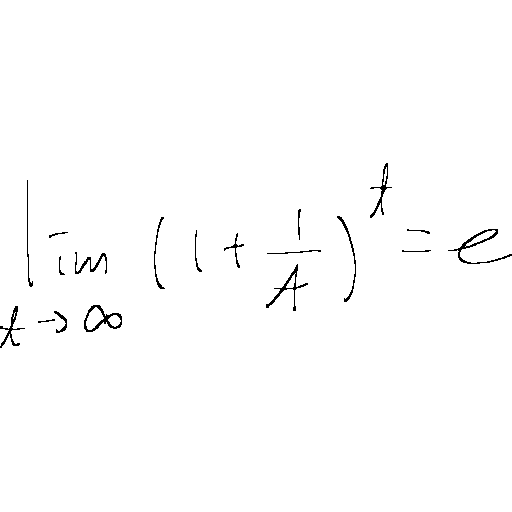 \lim_{t \to \infty} ( 1 + \frac{1}{A} )^{t} = e